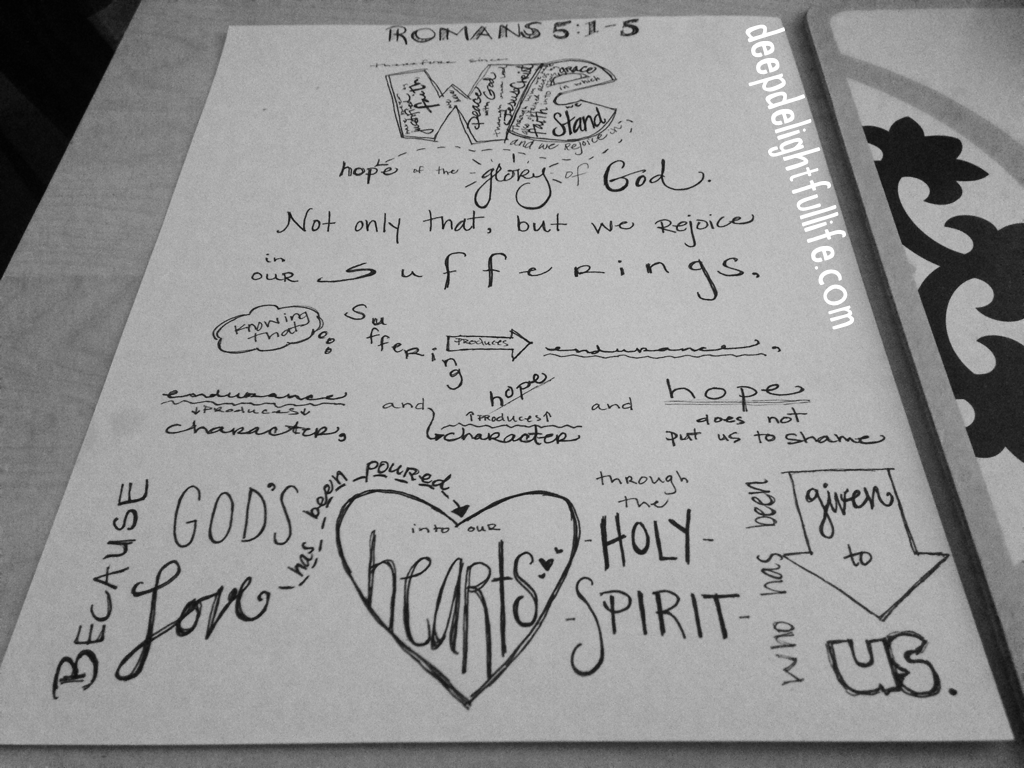 ROMANS 5:1-5
therefore since
WE
faith
peace with God
Jesus Christ
faith into
grace
in which
we
Stand
and we rejoice in
hope of the glory of God.
Not only that, but we Rejoice
in our sufferings,
knowing that
suffering PRODUCES endurance,
endurance PRODUCES character,
and character PRODUCES hope
and hope does not put us to shame
BECAUSE GOD'S Love has been poured into our hearts
through the HOLY SPIRIT
who has been given to us.
deepdelightfullife.com